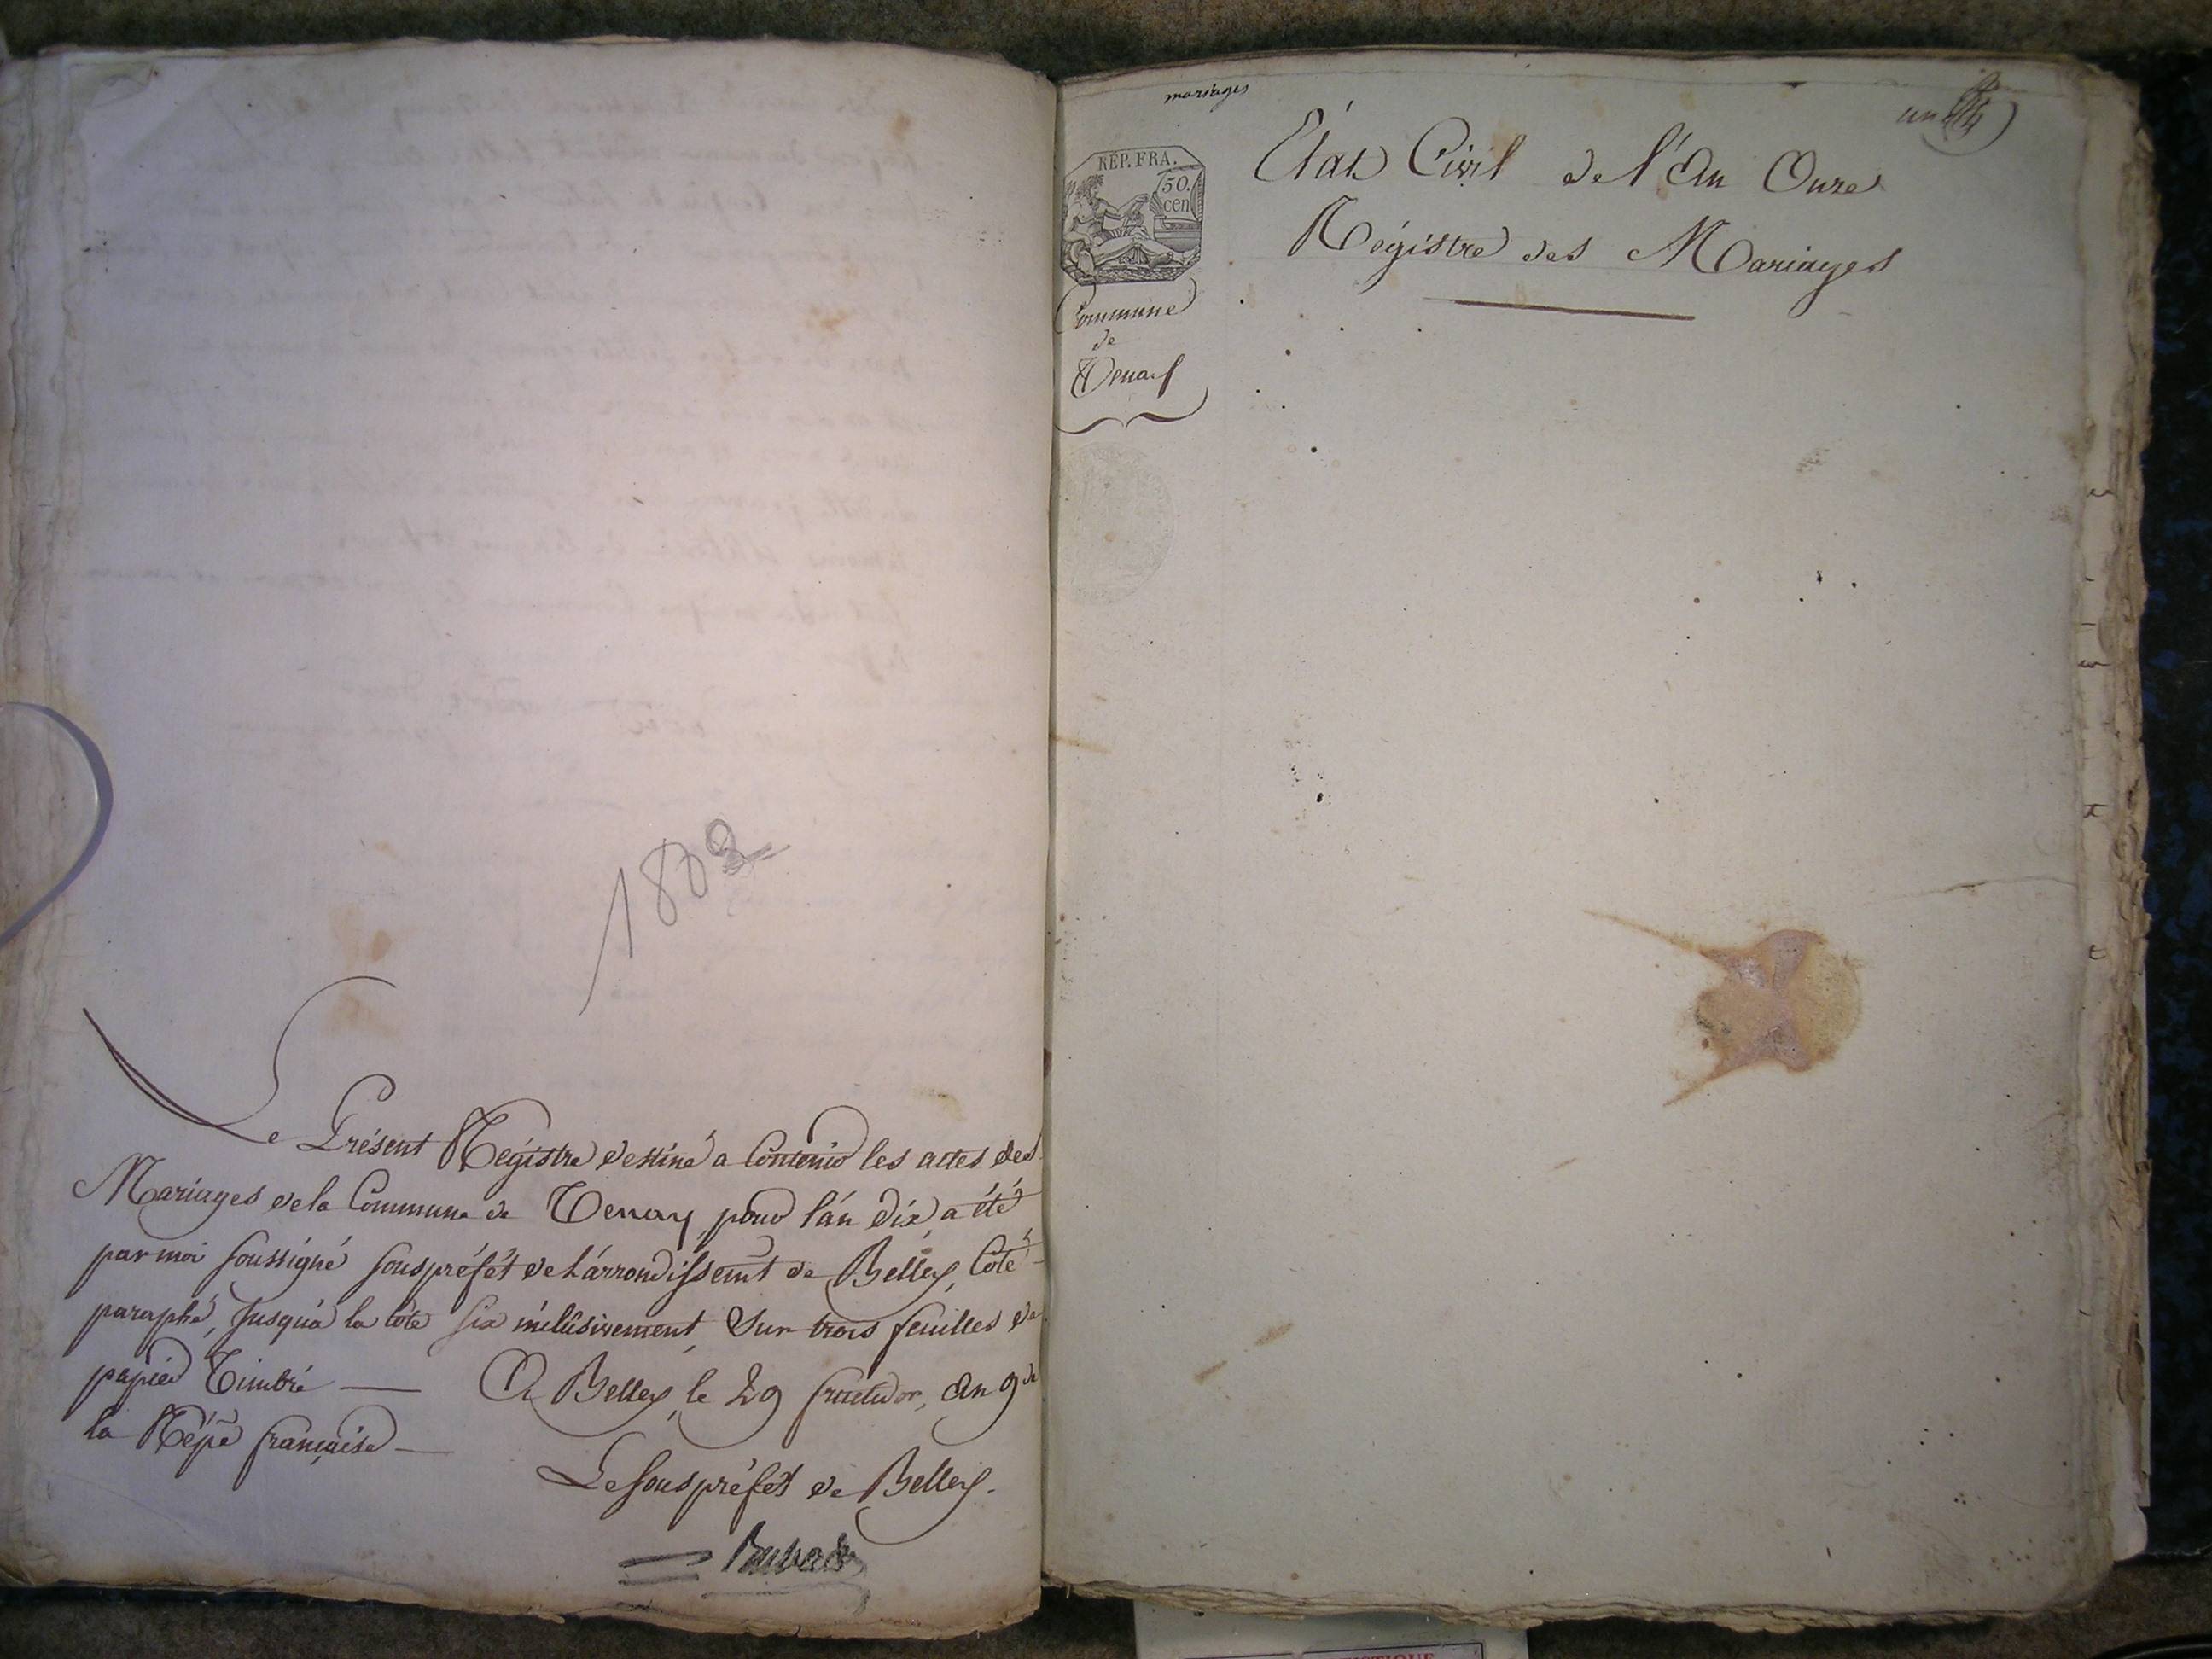 1802
Le Présent Régistre destiné a Contenir les actes des
Mariages de la Commune de Tenay, pour l'an dix, a été
par moi soussigné souspréfét de L'arrondissemt de Belley, Coté
paraphé, Jusqu'à la côte six inclusivement, Sur trois feuilles de
papier Timbré — A Belley, le 29 fructidor, An 9 de
la Répe française —
Le souspréfét de Belley.
mariages
un
REP. FRA.
50.
cen
Commune
de
Tenay
Etat Civil de l'An Onze
Régistre des Mariages